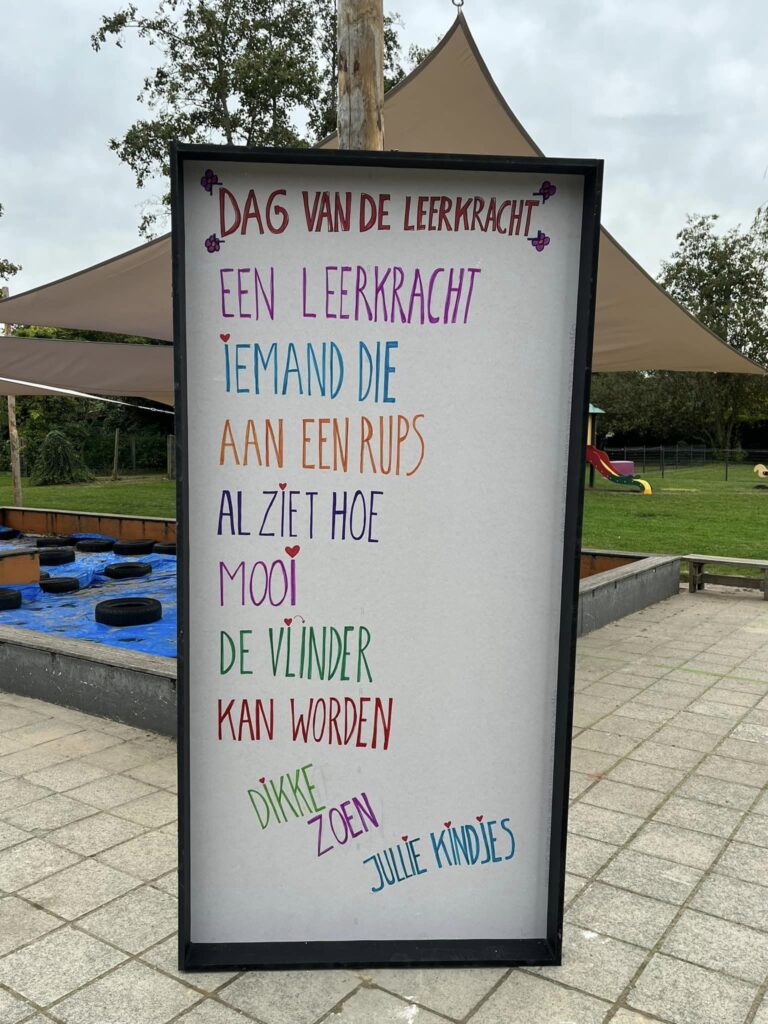 DAG VAN DE LEERKRACHT
EEN LEERKRACHT
IEMAND DIE
AAN EEN RUPS
AL ZIET HOE
MOOI
DE VLINDER
KAN WORDEN
DIKKE
ZOEN
JULLIE KINDJES